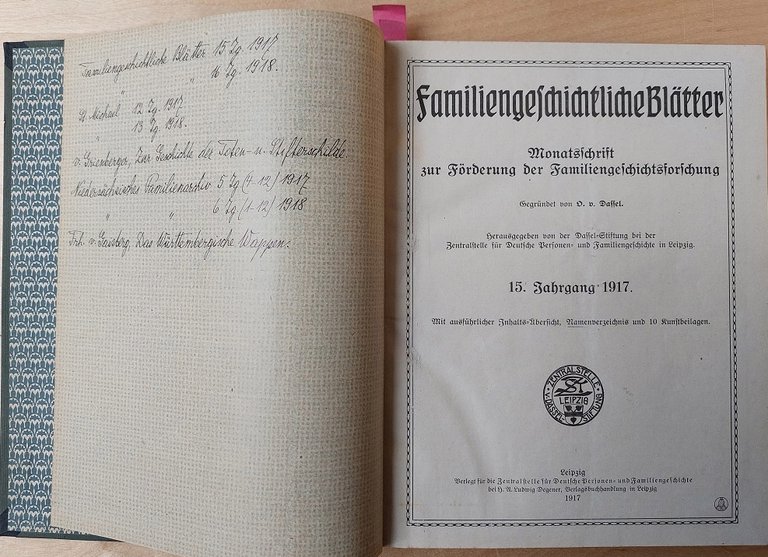 Familiengeschichtliche Blätter 15 Jg. 1917
" " 16 Jg. 1918.
St. Michael 12 Jg. 1917
" 13 Jg. 1918.
v. Grienberger, Zur Geschichte der Toten- u. Stifterschilde
Niedersächsisches Familienarchiv 5 Jg (4-12) 1917
" " 6 Jg (1-12) 1918
Frh. v. Gaisberg, Das Württembergische Wappen.
Familiengeschichtliche Blätter
Monatsschrift
zur Förderung der Familiengeschichtsforschung
Gegründet von O. v. Dassel.
Herausgegeben von der Dassel-Stiftung bei der
Zentralstelle für Deutsche Personen- und Familiengeschichte in Leipzig.
15. Jahrgang 1917.
Mit ausführlicher Inhalts-Übersicht, Namenverzeichnis und 10 Kunstbeilagen.
ZENTRALSTELLE
LEIPZIG
V. DASSEL STIFTUNG
Leipzig
Verlegt für die Zentralstelle für Deutsche Personen- und Familiengeschichte
bei H. A. Ludwig Degener, Verlagsbuchhandlung in Leipzig
1917